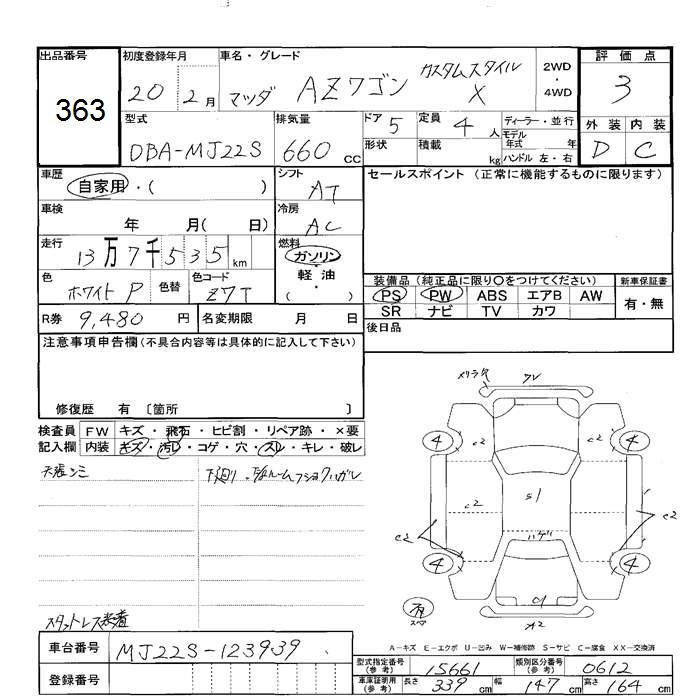 出品番号 初度登録年月 車名・グレード 評価点
363
20 2月 マツダ AZワゴン カスタムスタイル X 2WD・4WD 3
型式 排気量 ドア 定員 ディーラー・並行 外装 内装
DBA-MJ22S 660cc 5 4人 モデル年式 年 D C
形状 積載 kg ハンドル 左・右
車歴 シフト セールスポイント (正常に機能するものに限ります)
自家用・( ) AT
車検 冷房
年 月( 日) AC
走行 燃料
13万7千535km ガソリン・軽油・( )
色 色替 色コード 装備品 (純正品に限り○をつけてください) 新車保証書
ホワイトP Z7T PS PW ABS エアB AW 有・無
SR ナビ TV カワ
R券 9,480円 名変期限 月 日 後日品
注意事項申告欄 (不具合内容等は具体的に記入して下さい)
修復歴 有 〔箇所 〕
検査員記入欄 FW キズ・飛石・ヒビ割・リペア跡・×要
内装 キズ・汚レ・コゲ・穴・スレ・キレ・破レ
天張シミ 下廻り
スタットレス装着
4 4 4 4
C2 C2 C2 C2 C2
S1
ハゲ
C1
A2
スペア
A-キズ E-エクボ U-凹み W-補修跡 S-サビ C-腐食 XX-交換済
車台番号 MJ22S-123939
登録番号
型式指定番号(参考) 15661 類別区分番号(参考) 0612
車庫証明用(参考) 長さ 339cm 幅 147cm 高さ 164cm